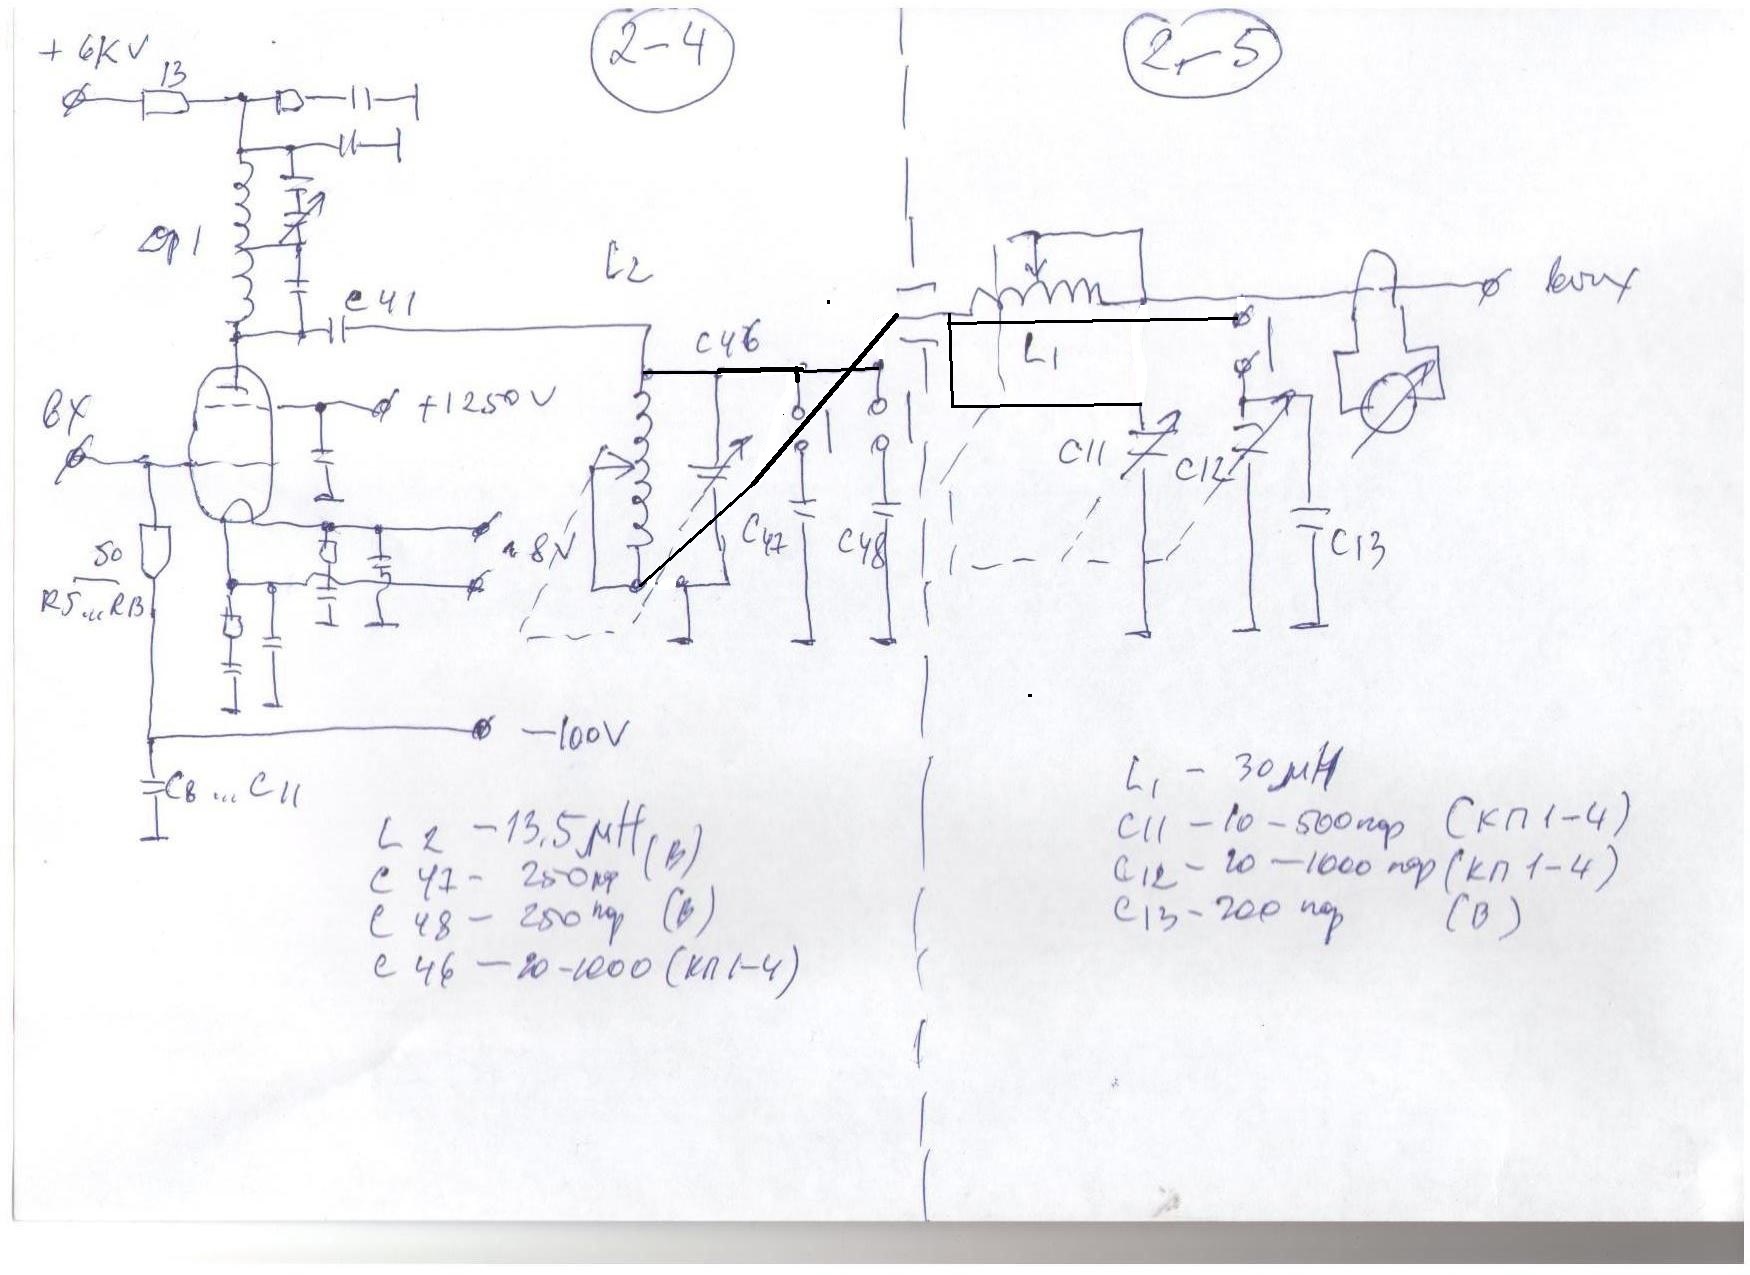 2-4
2-5
+ 6KV
13
Др1
C41
L2
C46
вх
+1250V
~8V
50
R5...R13
C47
C48
-100V
C8...C11
L1
C11
C12
C13
вых
L2 - 13,5 μH (В)
C47 - 250 пф
C48 - 250 пф (В)
C46 - 20-1000 (КП1-4)
L1 - 30 μH
C11 - 10-500 пф (КП1-4)
C12 - 20-1000 пф (КП1-4)
C13 - 200 пф (В)